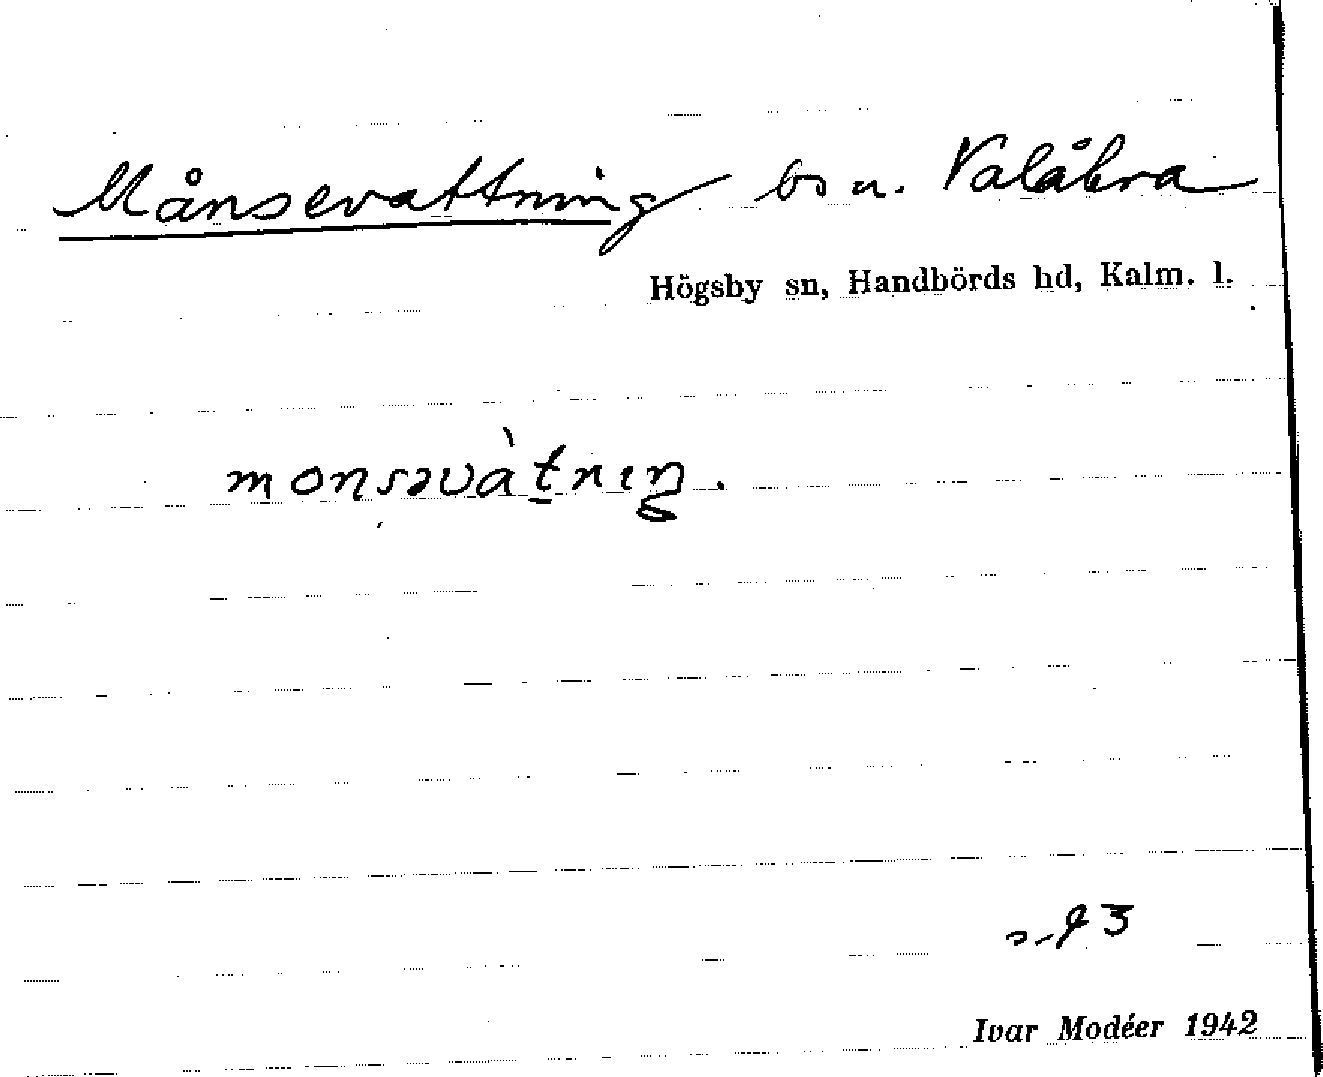 Månsevattning bs u. Valåkra
Högsby sn, Handbörds hd, Kalm. l.
monsəvàtnıŋ.
Ivar Modéer 1942